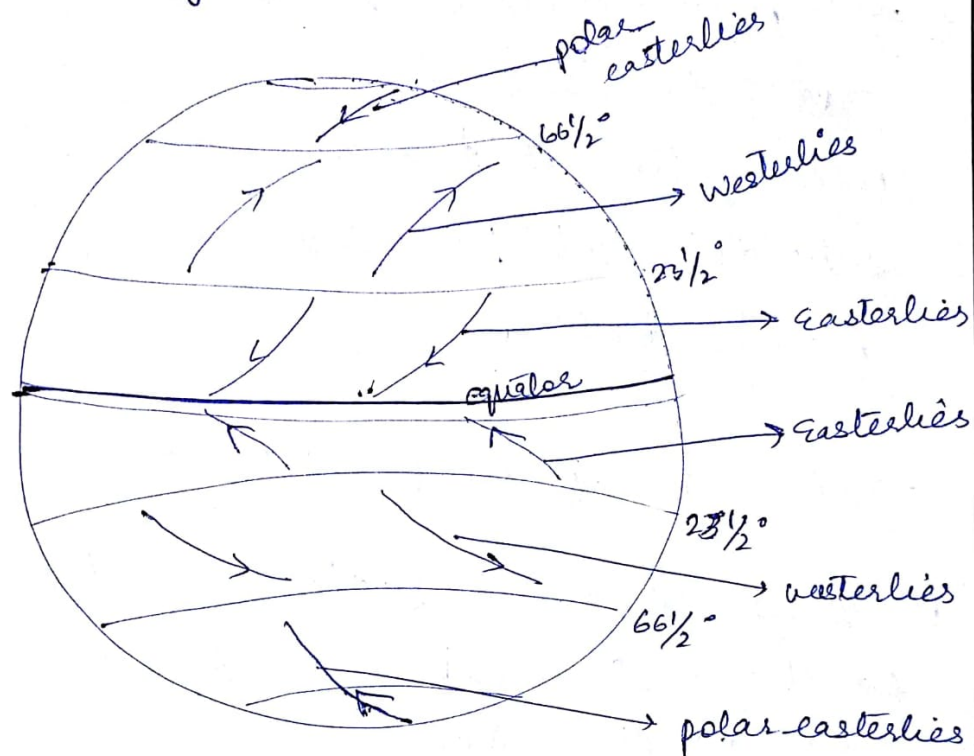 polar
easterlies
66 1/2°
Westerlies
23 1/2°
Easterlies
equator
Easterliês
23 1/2°
westerlies
66 1/2°
polar easterlies